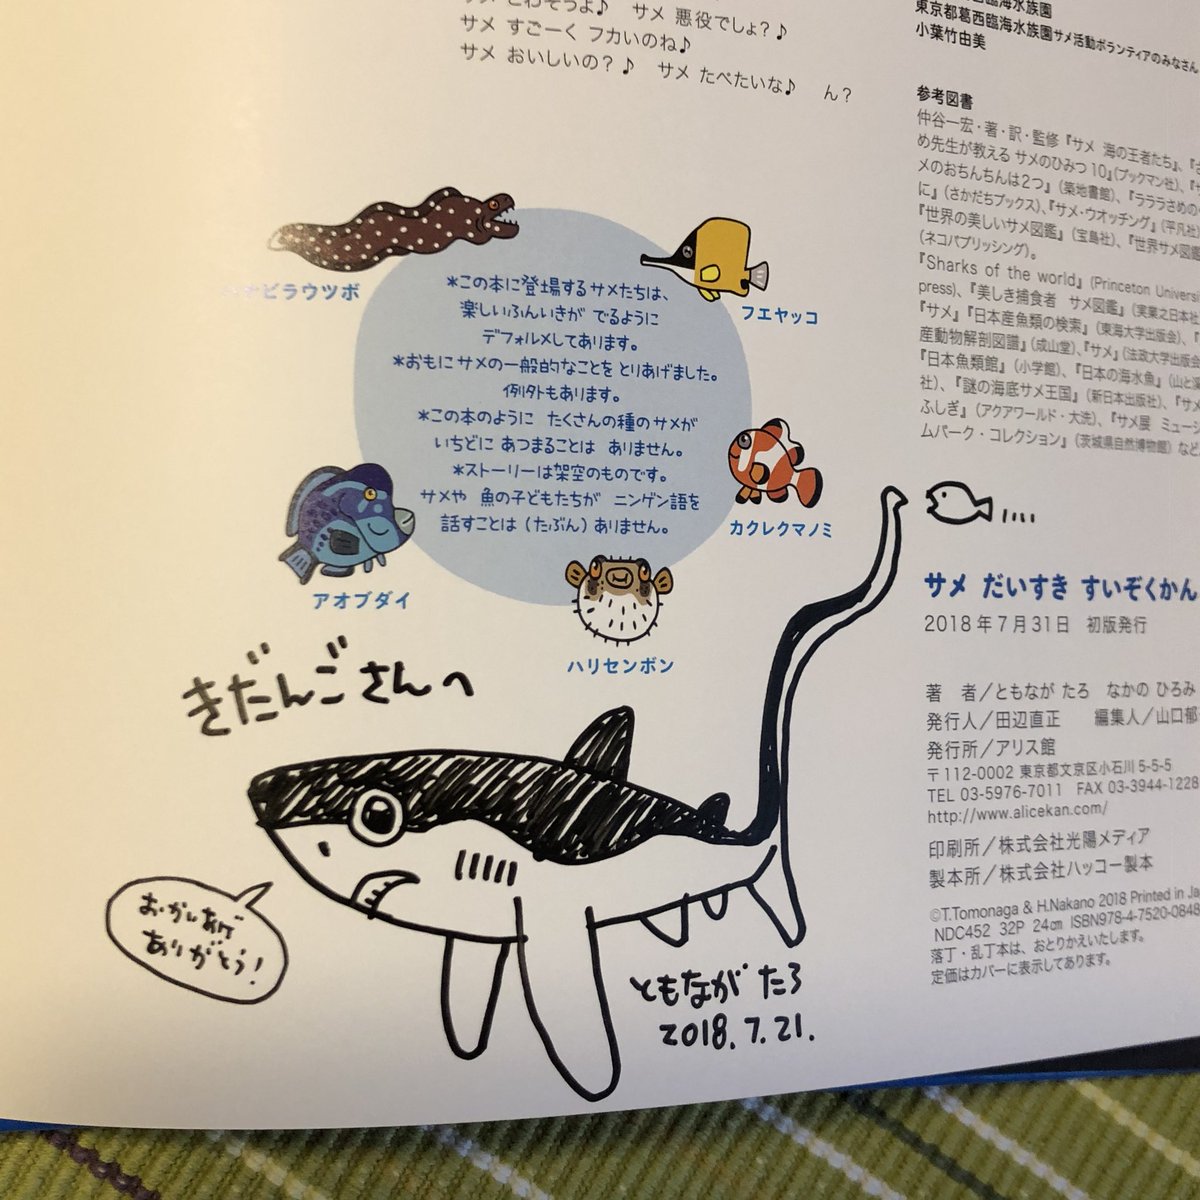 サメ 悪役でしょ?♪
サメ すごーく フカいのね♪
サメ おいしいの?♪ サメ たべたいな♪ ん?
東京都葛西臨海水族園サメ活動ボランティアのみなさん
小葉竹由美
参考図書
仲谷一宏・著・訳・監修『サメ 海の王者たち』、『さ
め先生が教える サメのひみつ10』(ブックマン社)、『
メのおちんちんは2つ』(築地書館)、『ラララさめの
に』(さかだちブックス)、『サメ・ウオッチング』(平凡社)
『世界の美しいサメ図鑑』(宝島社)、『世界サメ図鑑
(ネコパブリッシング)。
『Sharks of the world』(Princeton Univers
press)、『美しき捕食者 サメ図鑑』(実業之日本社
『サメ』『日本産魚類の検索』(東海大学出版会)、『
産動物解剖図譜』(成山堂)、『サメ』(法政大学出版
『日本魚類館』(小学館)、『日本の海水魚』(山と渓
社)、『謎の海底サメ王国』(新日本出版社)、『サメ
ふしぎ』(アクアワールド・大洗)、『サメ展 ミュージ
ムパーク・コレクション』(茨城県自然博物館)など
ビラウツボ
フエヤッコ
カクレクマノミ
ハリセンボン
アオブダイ
*この本に登場するサメたちは、
楽しいふんいきが でるように
デフォルメしてあります。
*おもにサメの一般的なことを とりあげました。
例外もあります。
*この本のように たくさんの種のサメが
いちどに あつまることは ありません。
*ストーリーは架空のものです。
サメや 魚の子どもたちが ニンゲン語を
話すことは(たぶん)ありません。
きだんごさんへ
おかいあげ
ありがとう!
ともながたろ
2018.7.21.
サメ だいすき すいぞくかん
2018年7月31日 初版発行
著 者/ともなが たろ なかの ひろみ
発行人/田辺直正 編集人/山口郁
発行所/アリス館
〒112-0002 東京都文京区小石川5-5-5
TEL 03-5976-7011 FAX 03-3944-1228
http://www.alicekan.com/
印刷所/株式会社光陽メディア
製本所/株式会社ハッコー製本
©T.Tomonaga & H.Nakano 2018 Printed in Ja
NDC452 32P 24cm ISBN978-4-7520-0848
落丁・乱丁本は、おとりかえいたします。
定価はカバーに表示してあります。